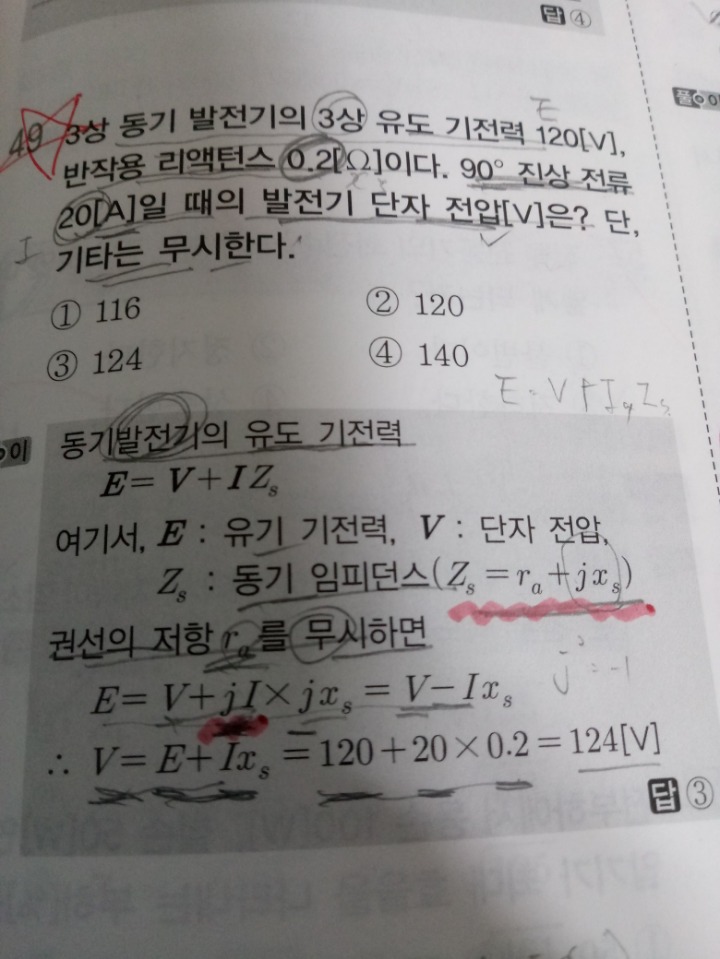 답 ④
풀이
49 3상 동기 발전기의 3상 유도 기전력 120[V],
E
반작용 리액턴스 0.2[Ω]이다. 90° 진상 전류
20[A]일 때의 발전기 단자 전압[V]은? 단,
I
기타는 무시한다.
① 116 ② 120
③ 124 ④ 140
이
동기발전기의 유도 기전력
E = V + IZₛ
여기서, E : 유기 기전력, V : 단자 전압,
Zₛ : 동기 임피던스(Zₛ = rₐ + jxₛ)
권선의 저항 rₐ를 무시하면
E = V + jI × jxₛ = V − Ixₛ
j² = -1
∴ V = E + Ixₛ = 120 + 20 × 0.2 = 124[V]
답 ③